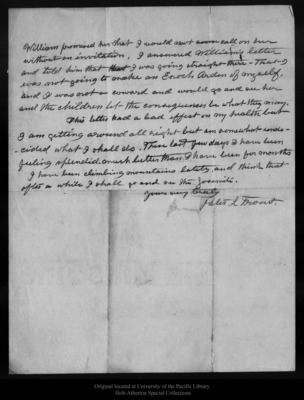 William promised her that I would not soon call on her
without an invitation. I answered William's letter
and told him that I was going straight there - That I
was not going to make an Enoch Arden of myself,
and I was not a coward and would go and see her
and the children let the consequences be what they may.
This letter had a bad effect on my health but
I am getting around all right but am somewhat unde-
cided what I shall do. These last few days I have been
feeling splendid, much better than I have been for months
I have been climbing mountains lately, and think that
after a while I shall go and see the Yosemite.
Yours very truly
Original located at University of the Pacific Library
Holt-Atherton Special Collections